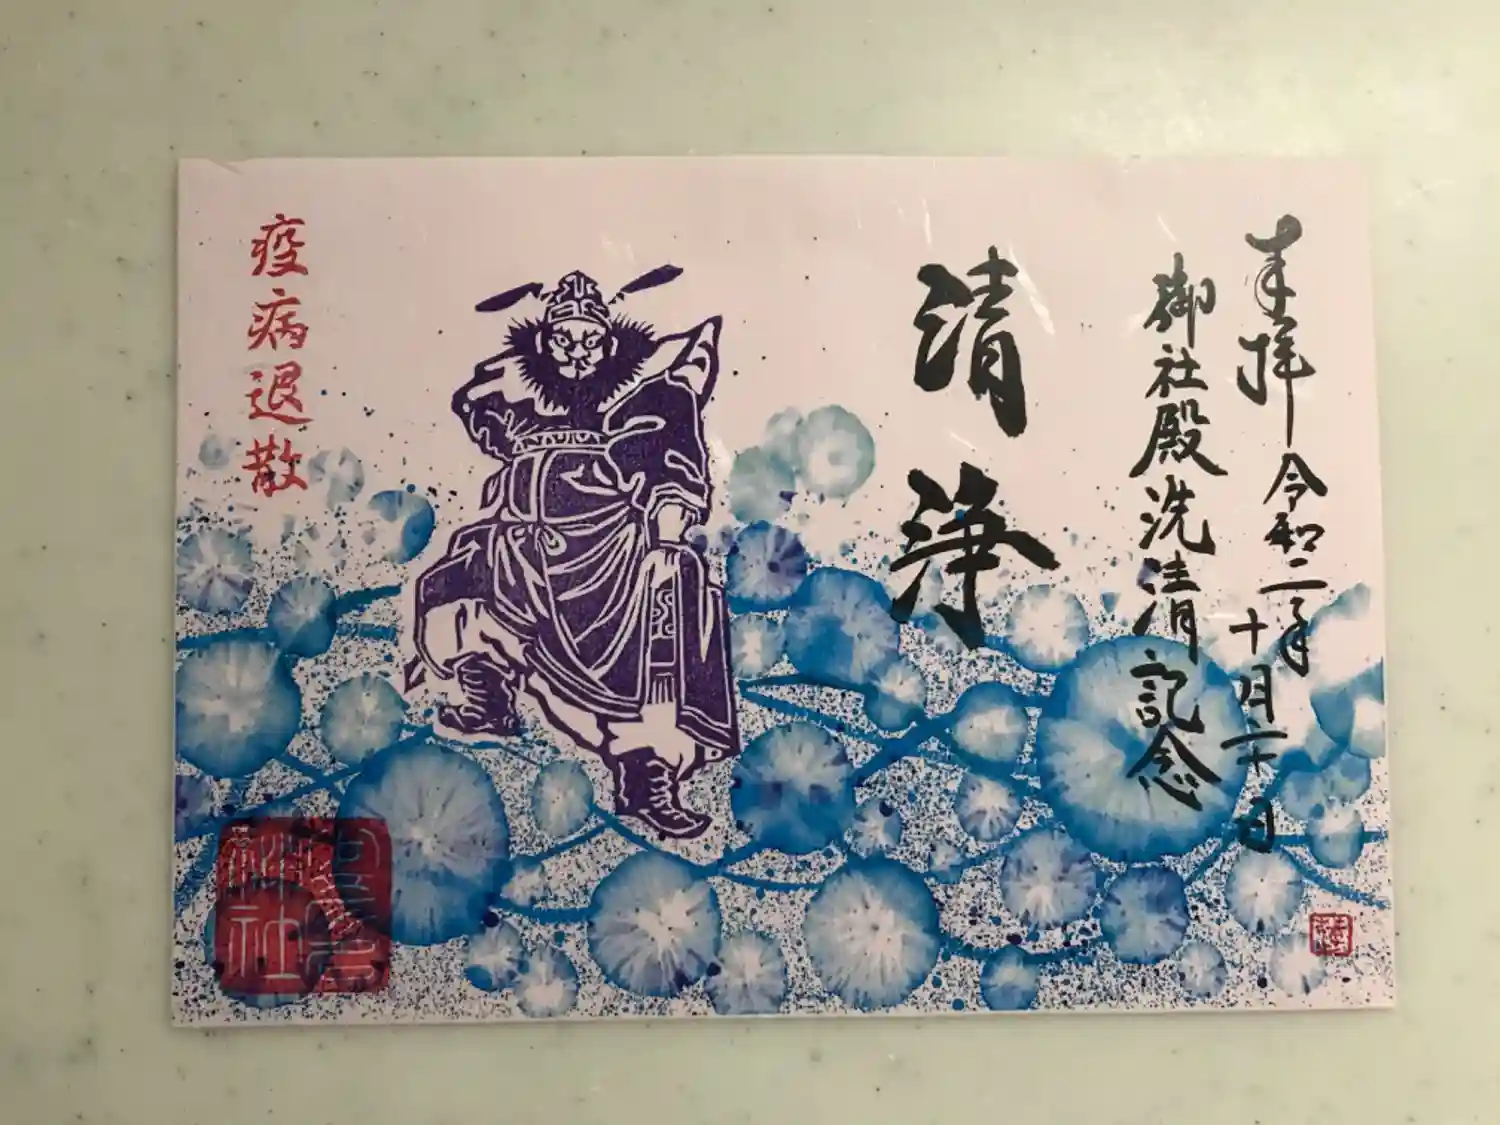 奉拝 令和二年十月二十日
御社殿洗清記念
清浄
疫病退散
神社